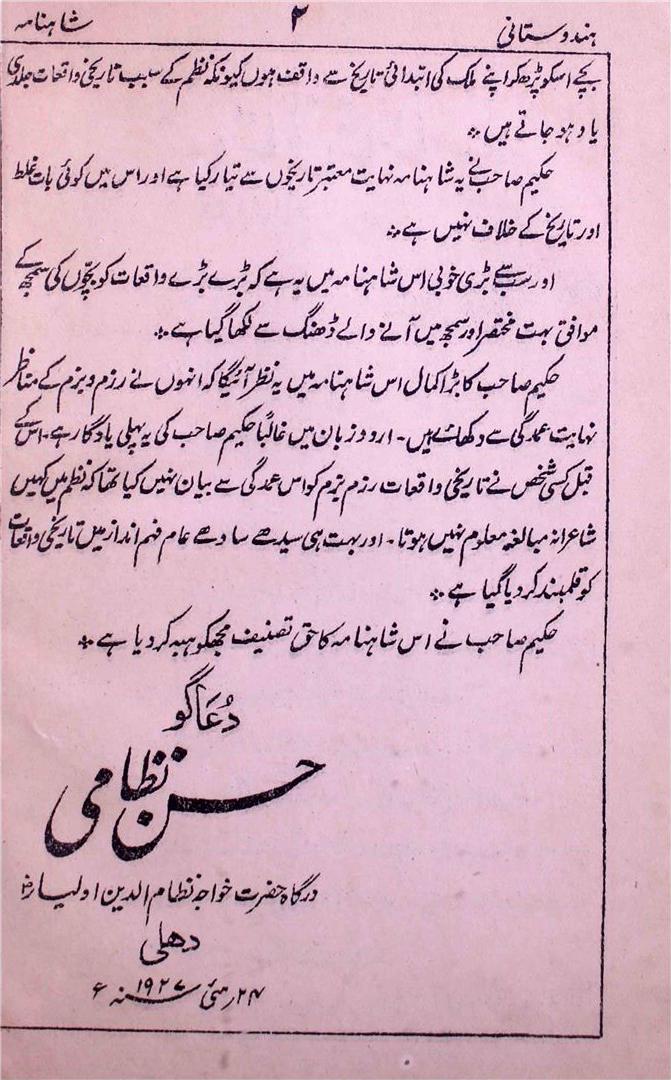 ہندوستانی ۲ شاہنامہ
بچے اسکو پڑھکر اپنے ملک کی ابتدائی تاریخ سے واقف ہوں کیونکہ نظم کے سبب تاریخی واقعات جلدی
یاد ہو جاتے ہیں ؞
حکیم صاحب نے یہ شاہنامہ نہایت معتبر تاریخوں سے تیار کیا ہے اور اس میں کوئی بات غلط
اور تاریخ کے خلاف نہیں ہے ؞
اور سب سے بڑی خوبی اس شاہنامہ میں یہ ہے کہ بڑے بڑے واقعات کو بچوں کی سمجھ کے
موافق بہت مختصر اور سمجھ میں آنے والے ڈھنگ سے لکھا گیا ہے ؞
حکیم صاحب کا بڑا کمال اس شاہنامہ میں یہ نظر آئیگا کہ انہوں نے رزم و بزم کے مناظر
نہایت عمدگی سے دکھائے ہیں ۔ اردو زبان میں غالباً حکیم صاحب کی یہ پہلی یادگار ہے ۔ اس کے
قبل کسی شخص نے تاریخی واقعات رزم بزم کو اس عمدگی سے بیان نہیں کیا تھا کہ نظم میں کہیں
شاعرانہ مبالغہ معلوم نہیں ہوتا ۔ اور بہت ہی سیدھے سادھے عام فہم انداز میں تاریخی واقعات
کو قلمبند کر دیا گیا ہے ؞
حکیم صاحب نے اس شاہنامہ کا حق تصنیف مجھکو ہبہ کر دیا ہے ؞
دُعَاگو
حسن نظامی
درگاہ حضرت خواجہ نظام الدین اولیاء رضؓ
دھلی
۲۴ رمئی ۱۹۲۷ سنہ ء